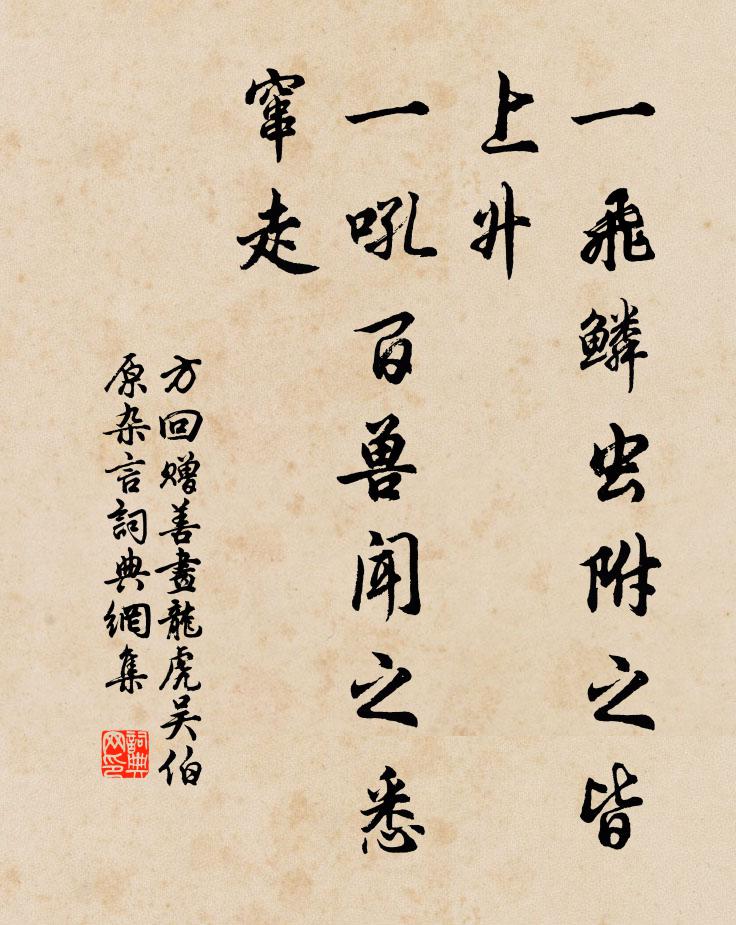 一飛鳞虫附之皆
上升
一吼百兽闻之悉
窜走
方回赠善畫龍虎吴伯
原杂言詞典網集
詞典
网印